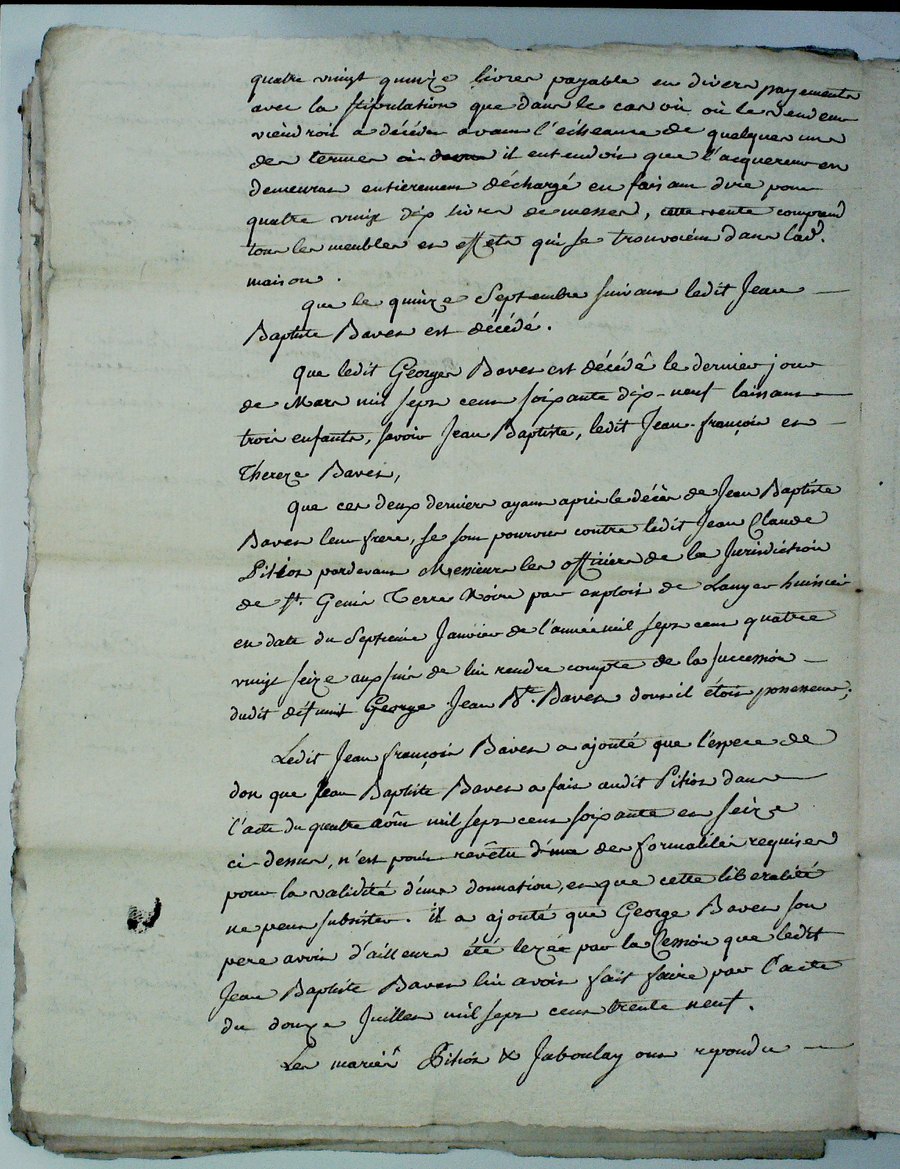 quatre vingt quinze livres payable en divers payements
avec la stipulation que dans le cas où où le vendeur
viendroit a décéder avant l'échéance de quelques uns
des termes il entendoit que l'acquereur en
demeurat entierement déchargé en faisant dire pour
quatre vingt dix livres de messes, cette vente comprend
tous les meubles et effets qui se trouvoient dans lad.
maison.
que le quinze Septembre suivant ledit Jean
Baptiste Baves est décédé.
que ledit George Baves est décédé le dernier jour
de Mars mil sept cens soixante dix-neuf laissant
trois enfants, savoir Jean Baptiste, ledit Jean-françois et
Thereze Baves,
que ces deux derniers ayant après le décès de Jean Baptiste
Baves leur frere, se sont pourvus contre ledit Jean Claude
Pitiot pardevant Messieurs les officiers de la Jurisdiction
de St. Genis Terre Noire par exploit de Langer huissier
en date du Septieme Janvier de l'année mil sept cent quatre
vingt seize aux fins de lui rendre compte de la succession
dudit défunt George Jean Bte. Baves dont il étoit possesseur;
Ledit Jean françois Baves a ajouté que l'espece de
don que Jean Baptiste Baves a fait audit Pitiot dans
l'acte du quatre août mil sept cens soixante et seize
ci-dessus, n'est point revêtu d'une des formalités requises
pour la validité d'une donnation, et que cette liberalité
ne peut subsister. il a ajouté que George Baves son
pere avoit d'ailleurs été lezée par la Cession que ledit
Jean Baptiste Baves lui avoit fait faire par l'acte
du douze Juillet mil sept cens trente neuf.
Les mariés Pitiot & Jaboulay ont repondu